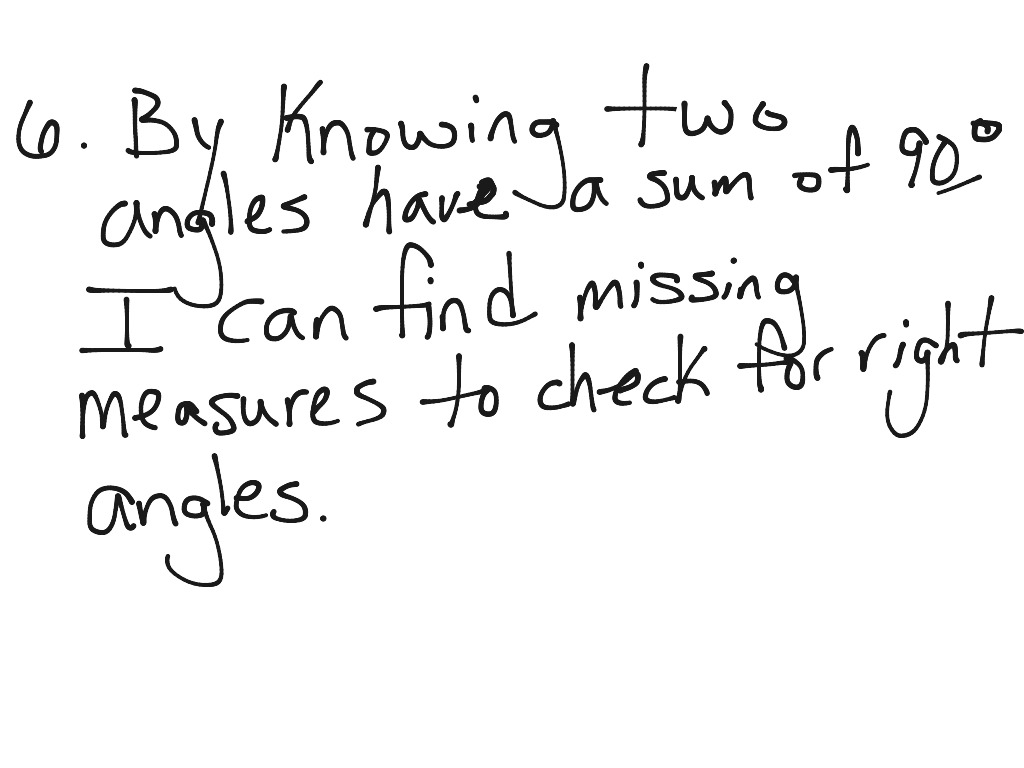 6. By Knowing two
angles have a sum of 90°
I can find missing
measures to check for right
angles.